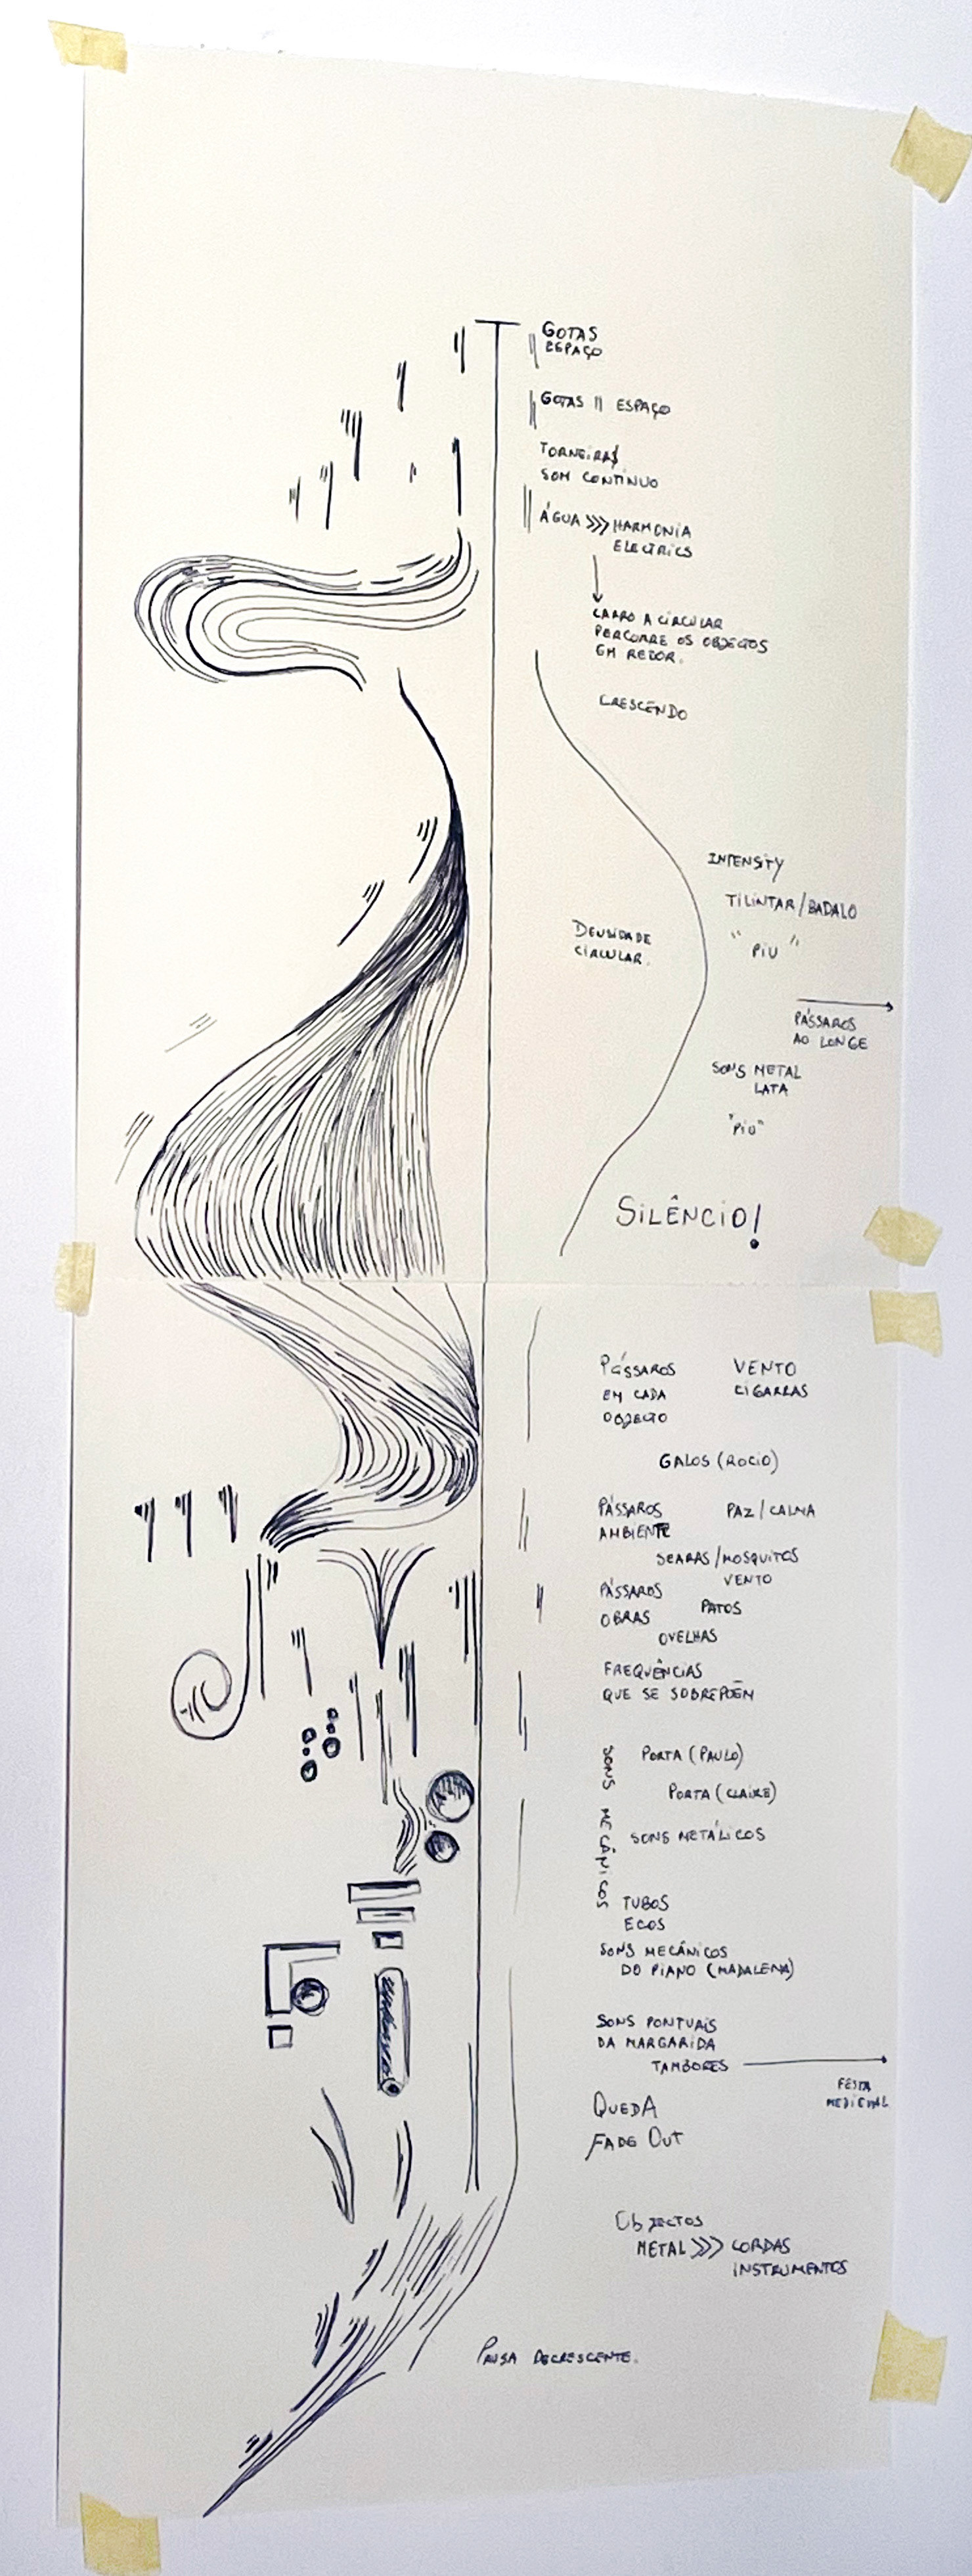 GOTAS
ESPAÇO
GOTAS || ESPAÇO
TORNEIRAS
SOM CONTÍNUO
ÁGUA >>> HARMONIA
ELECTRICS
CARRO A CIRCULAR
PERCORRE OS OBJECTOS
EM REDOR.
CRESCENDO
INTENSITY
TILINTAR/BADALO
DENSIDADE
CIRCULAR.
"PIU"
PÁSSAROS
AO LONGE
SONS METAL
LATA
"PIU"
SILÊNCIO!
PÁSSAROS
EM CADA
OBJECTO
VENTO
CIGARRAS
GALOS (ROCIO)
PÁSSAROS
AMBIENTE
PAZ/CALMA
SEARAS/MOSQUITOS
VENTO
PÁSSAROS
OBRAS
PATOS
OVELHAS
FREQUÊNCIAS
QUE SE SOBREPÕEM
SONS MECÂNICOS
PORTA (PAULO)
PORTA (CLAIRE)
SONS METÁLICOS
TUBOS
ECOS
SONS MECÂNICOS
DO PIANO (MADALENA)
SONS PONTUAIS
DA MARGARIDA
TAMBORES
FESTA
MEDIEVAL
QUEDA
FADE OUT
OBJECTOS
METAL >>> CORDAS
INSTRUMENTOS
PAUSA DECRESCENTE.